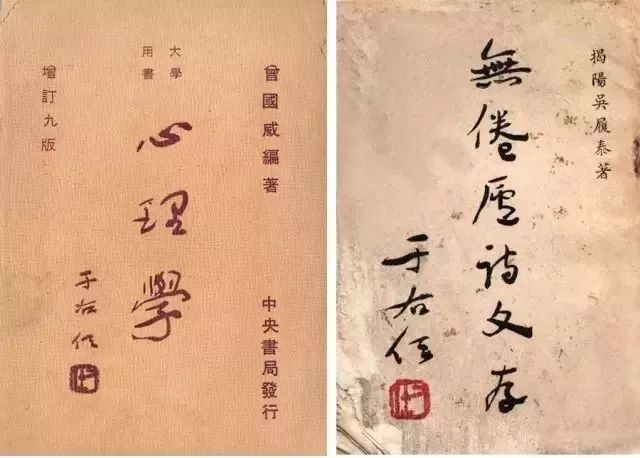 曾國威編著
中央書局發行
大學
用書
心理學
于右任
增訂九版
揭陽吳履泰著
無倦廬詩文存
于右任